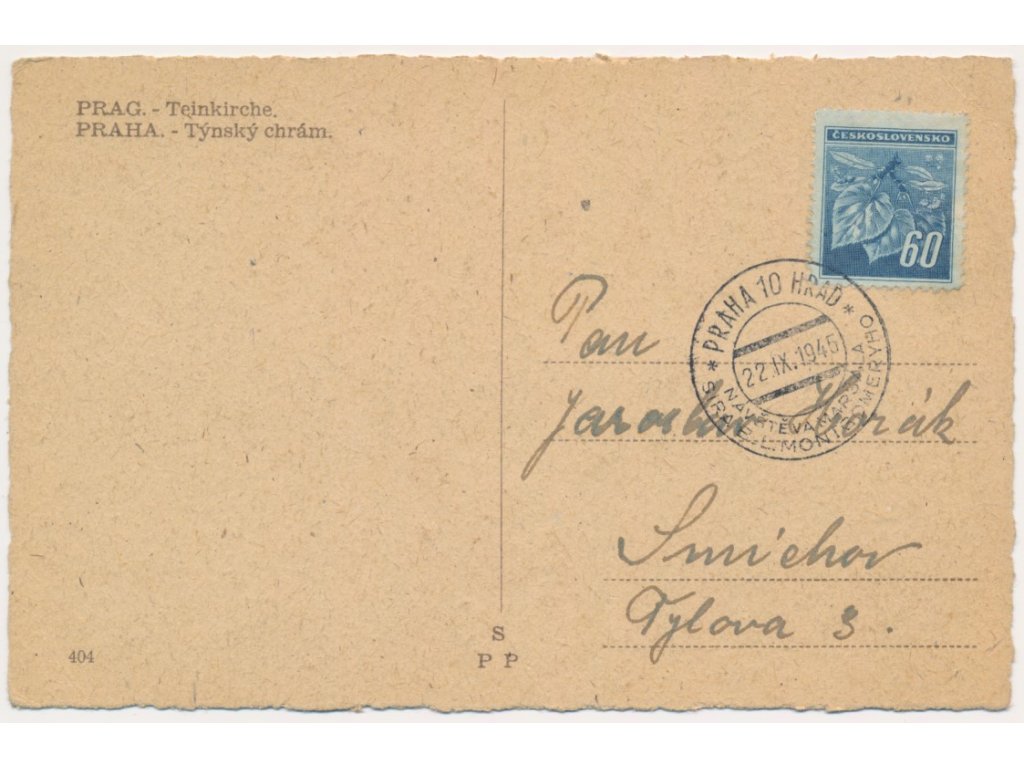 PRAG. - Teinkirche.
PRAHA. - Týnský chrám.
ČESKOSLOVENSKO
60
* PRAHA 10 HRAD *
22.IX.1945
NÁVŠTĚVA MARŠÁLA
SIRA B. L. MONTGOMERYHO
Pan
Jaroslav Horák
Smíchov
Tylova 3.
S
P P
404